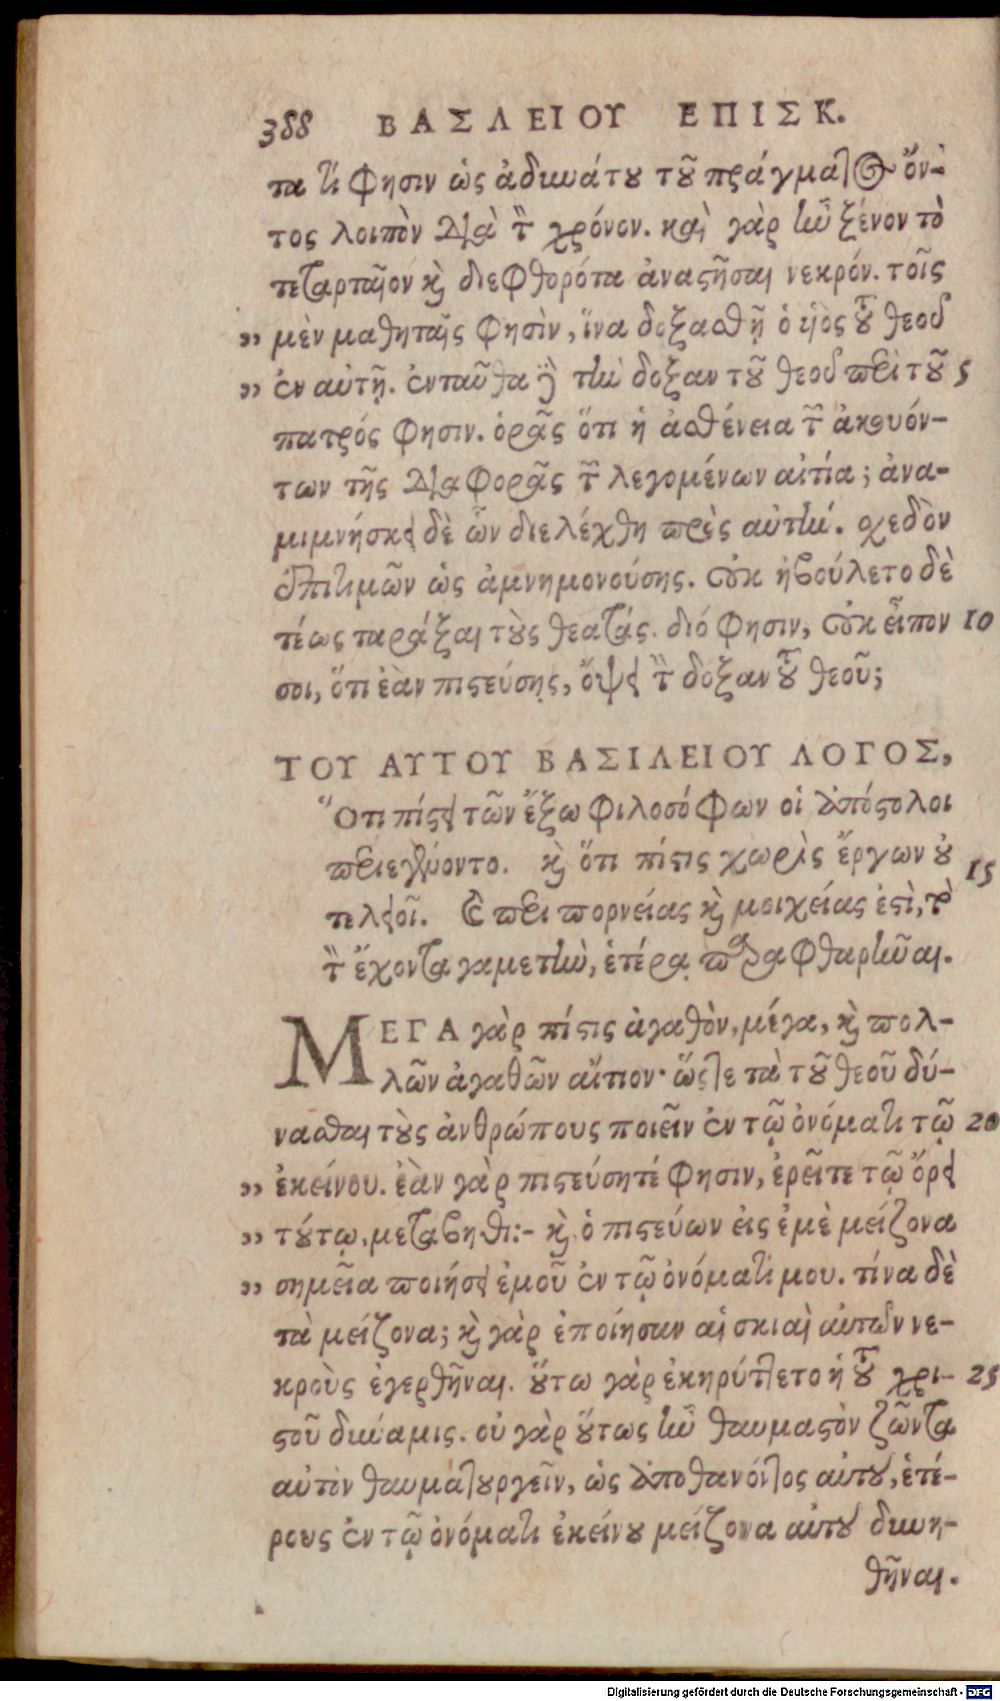 388 ΒΑΣΛΕΙΟΥ ΕΠΙΣΚ.
τα τί φησιν ὡς ἀδυνάτου τοῦ πράγματος ὄν-
τος λοιπὸν διὰ τὸν χρόνον. καὶ γὰρ ἦν ξένον τὸ
τεταρταῖον καὶ διεφθορότα ἀναστῆσαι νεκρόν. τοῖς
„ μὲν μαθηταῖς φησὶν, ἵνα δοξασθῇ ὁ υἱὸς τοῦ θεοῦ
„ ἐν αὐτῇ. ἐνταῦθα δὲ τὴν δόξαν τοῦ θεοῦ περὶ τοῦ 5
πατρός φησιν. ὁρᾷς ὅτι ἡ ἀσθένεια τῶν ἀκουόν-
των τῆς διαφορᾶς τῶν λεγομένων αἰτία; ἀνα-
μιμνήσκει δὲ ὧν διελέχθη πρὸς αὐτήν. σχεδὸν
ἐπιτιμῶν ὡς ἀμνημονούσης. οὐκ ἠβούλετο δὲ
τέως ταράξαι τοὺς θεατάς. διό φησιν, οὐκ εἶπον 10
σοι, ὅτι ἐὰν πιστεύσῃς, ὄψει τὴν δόξαν τοῦ θεοῦ;
ΤΟΥ ΑΥΤΟΥ ΒΑΣΙΛΕΙΟΥ ΛΟΓΟΣ,
Ὅτι πίστει τῶν ἔξω φιλοσόφων οἱ ἀπόστολοι
περιεγένοντο. καὶ ὅτι πίστις χωρὶς ἔργων οὐ 15
τελειοῖ. Καὶ περὶ πορνείας καὶ μοιχείας ἐστὶ, τὸ
τὸν ἔχοντα γαμετὴν, ἑτέρᾳ παραφθαρῆναι.
ΜΕΓΑ γὰρ πίστις ἀγαθὸν, μέγα, καὶ πολ-
λῶν ἀγαθῶν αἴτιον· ὥστε τὰ τοῦ θεοῦ δύ-
νασθαι τοὺς ἀνθρώπους ποιεῖν ἐν τῷ ὀνόματι τῷ 20
„ ἐκείνου. ἐὰν γὰρ πιστεύσητέ φησιν, ἐρεῖτε τῷ ὄρει
„ τούτῳ, μετάβηθι:- καὶ ὁ πιστεύων εἰς ἐμὲ μείζονα
„ σημεῖα ποιήσει ἐμοῦ ἐν τῷ ὀνόματι μου. τίνα δὲ
τὰ μείζονα; καὶ γὰρ ἐποίησαν αἱ σκιαὶ αὐτῶν νε-
κροὺς ἐγερθῆναι. οὕτω γὰρ ἐκηρύττετο ἡ τοῦ χρι- 25
στοῦ δύναμις. οὐ γὰρ οὕτως ἦν θαυμαστὸν ζῶντα
αὐτὸν θαυματουργεῖν, ὡς ἀποθανόντος αὐτοῦ, ἑτέ-
ρους ἐν τῷ ὀνόματι ἐκείνου μείζονα αὐτοῦ δυνη-
θῆναι.
Digitalisierung gefördert durch die Deutsche Forschungsgemeinschaft - DFG